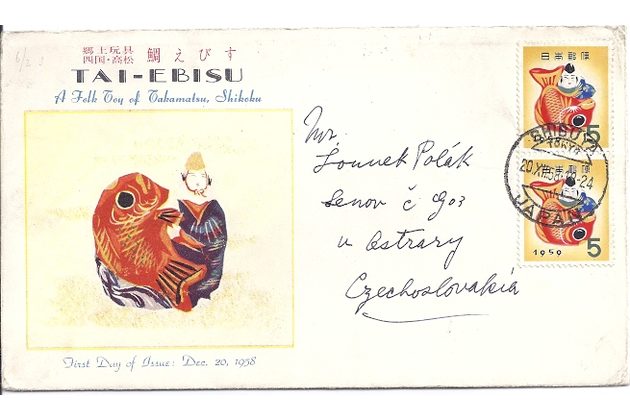 6/2
郷土玩具
四国・高松 鯛えびす
TAI-EBISU
A Folk Toy of Takamatsu, Shikoku
First Day of Issue: Dec. 20, 1958
Mr.
Polák
Senov č 903
u Ostravy
Czechoslovakia
日本郵便
5
SHIBUYA
TOKYO
20.XII.58
-24
JAPAN
日本郵便
1959 5